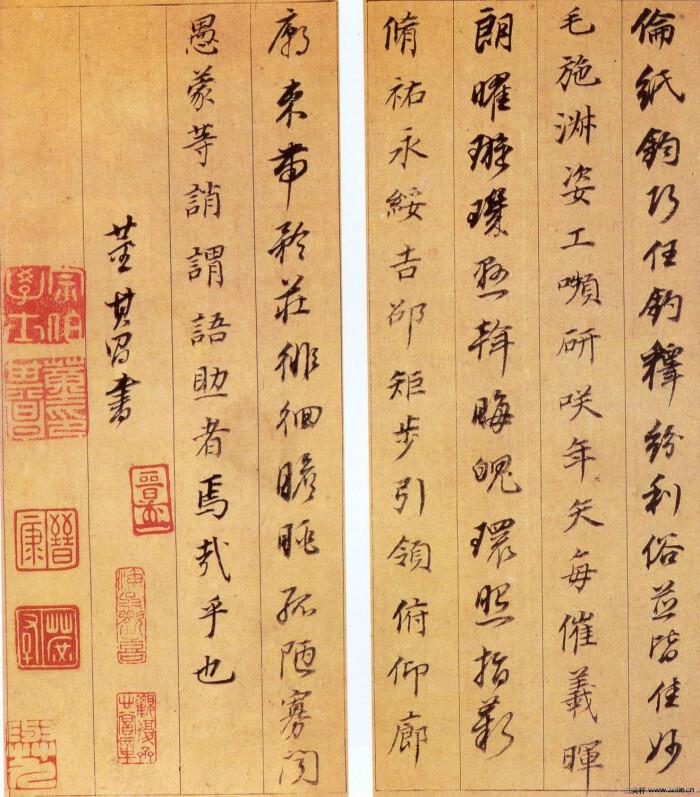 倫紙鈞巧任釣釋紛利俗並皆佳妙
毛施淑姿工嚬研咲年矢每催羲暉
朗曜璇璣懸斡晦魄環照指薪
脩祐永綏吉邵矩步引領俯仰廊
廟束帶矜莊徘徊瞻眺孤陋寡聞
愚蒙等誚謂語助者焉哉乎也
董其昌書
宗伯學士
董其昌